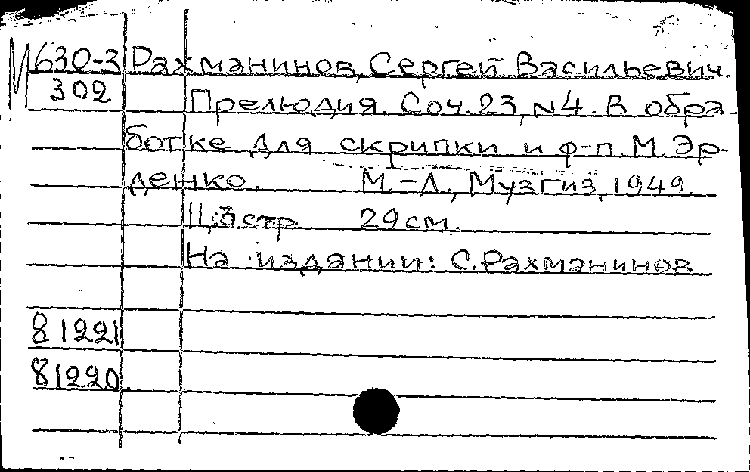 М630-3 Рахманинов, Сергей Васильевич.
302 Прелюдия. Соч. 23, N4. В обра-
ботке для скрипки и ф-п. М. Эр-
денко. М.-Л., Музгиз, 1949.
стр 29 см.
На издании: С. Рахманинов
81221
81220.